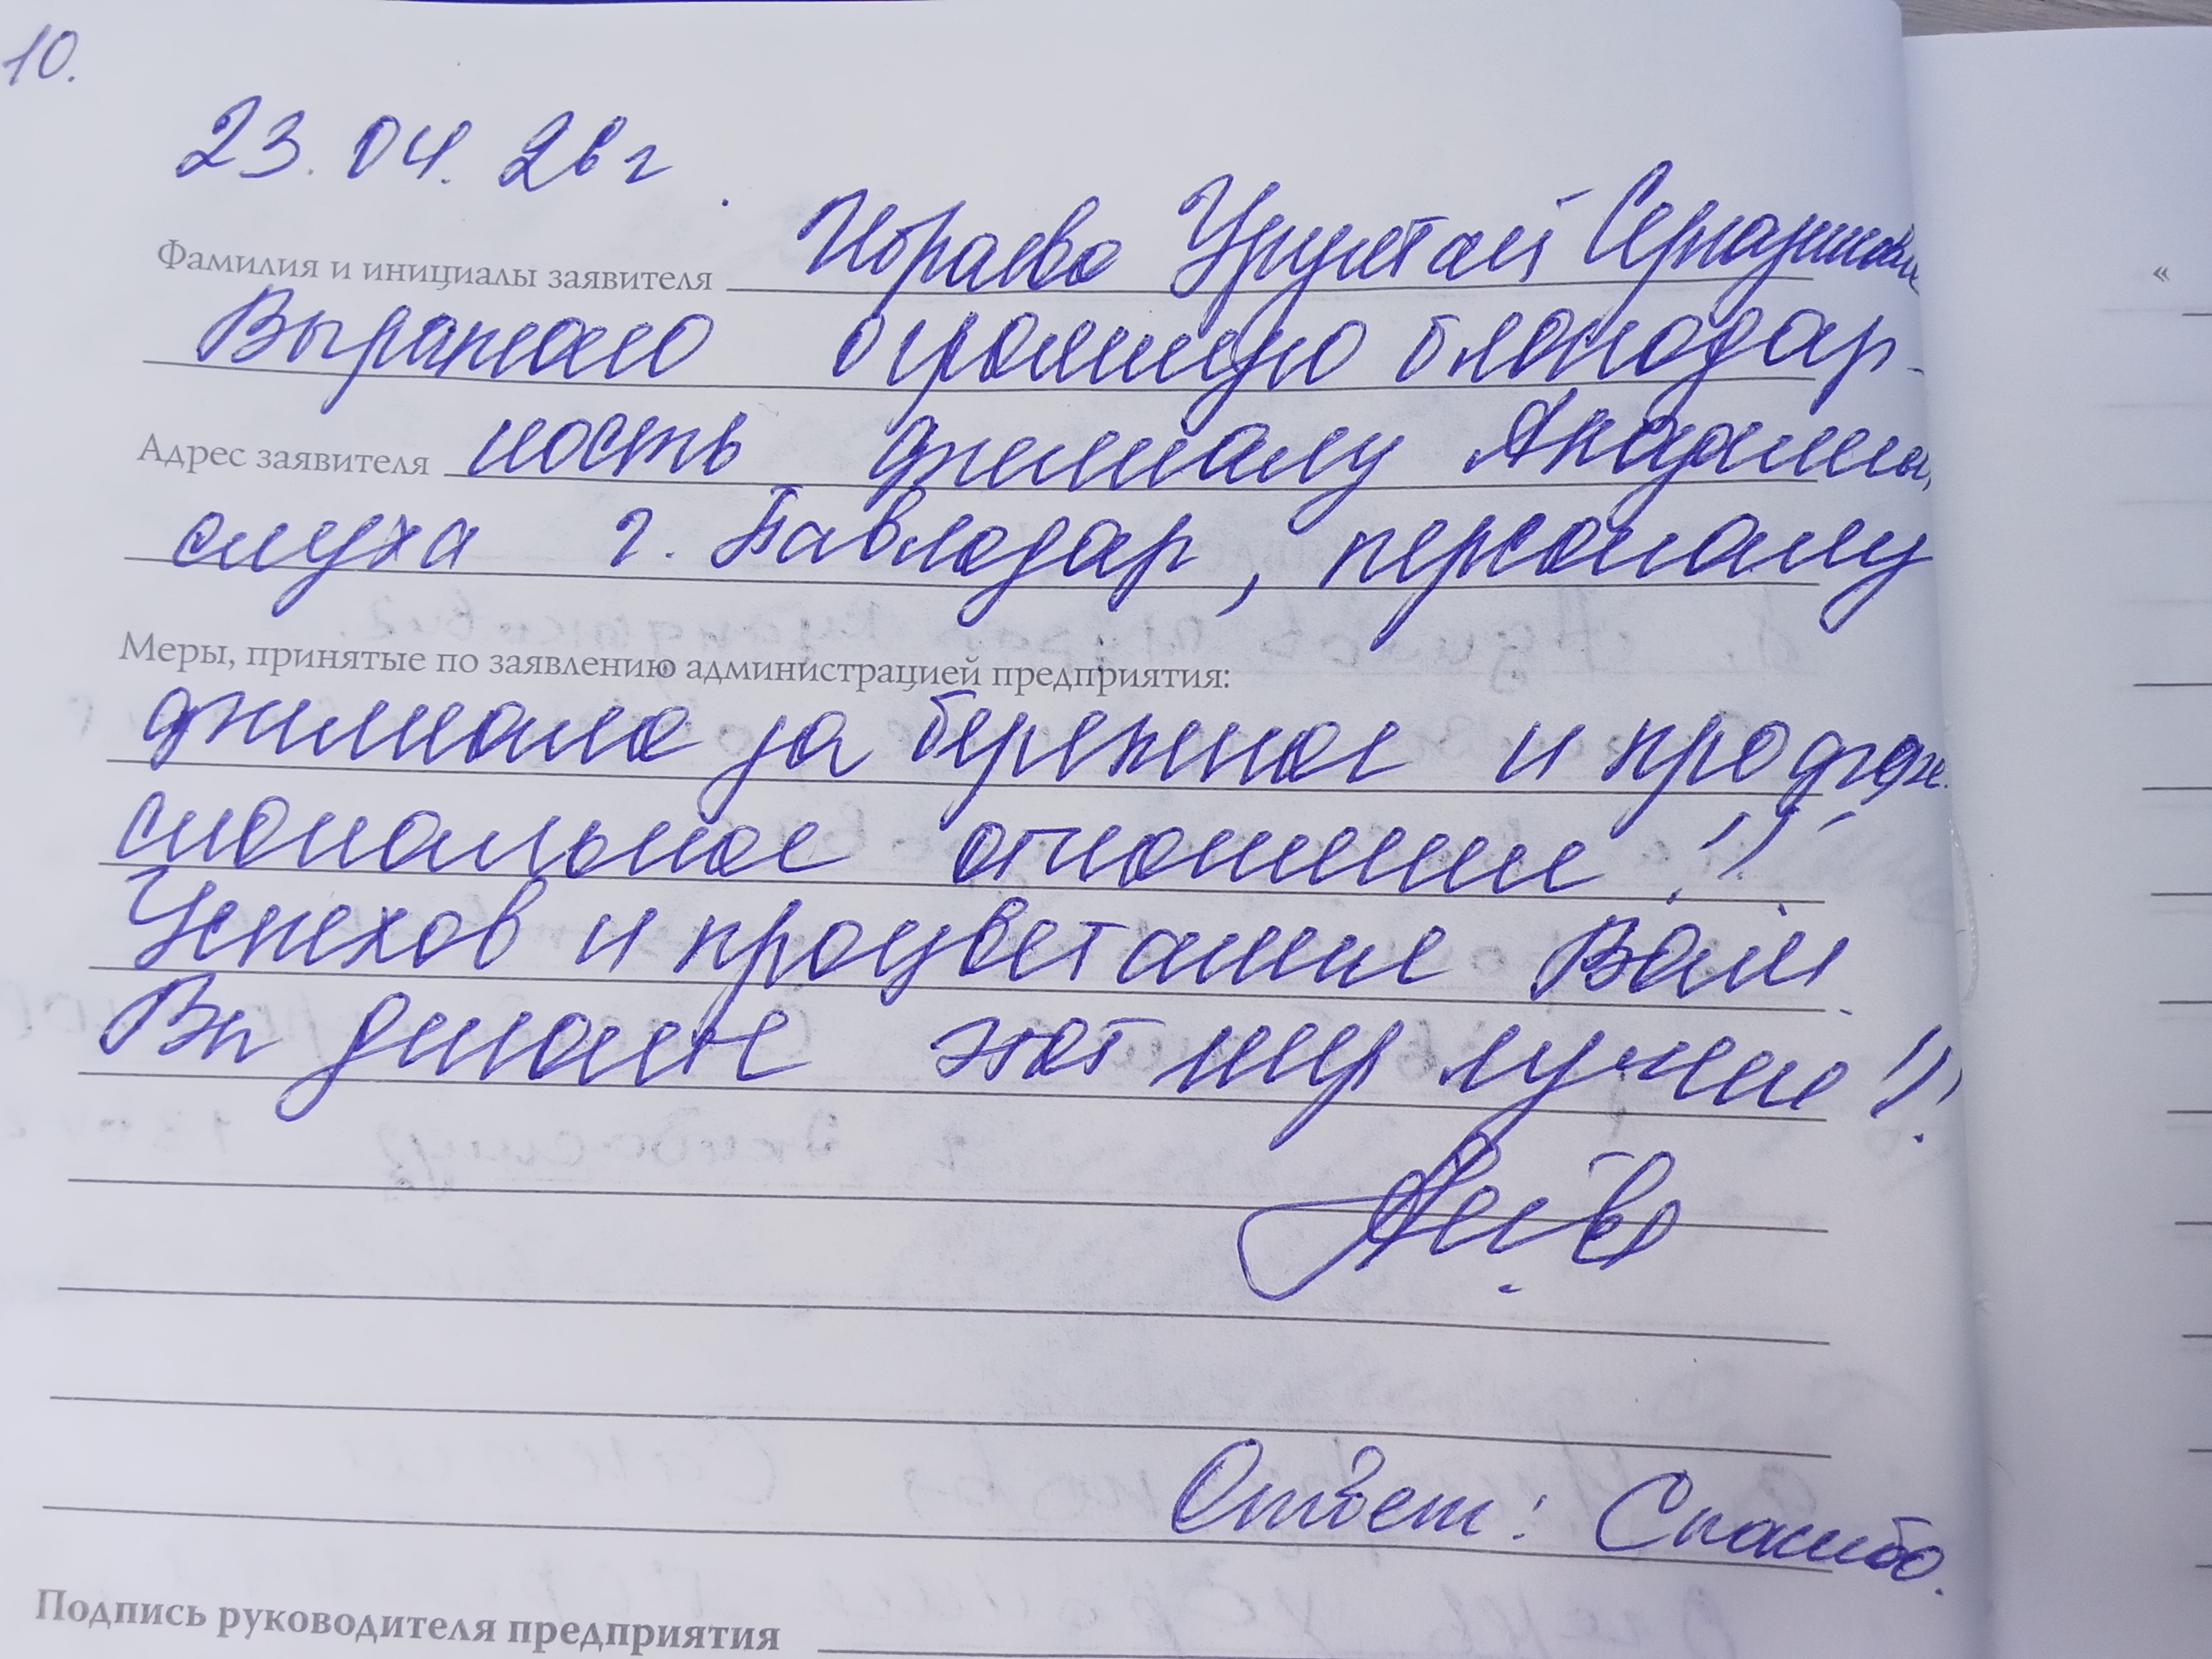 10.
23.04.26 г
Фамилия и инициалы заявителя Ибраева
Выражаю огромную благодар-
Адрес заявителя ность филиалу Академии
слуха г. Павлодар, персоналу
Меры, принятые по заявлению администрацией предприятия:
филиала за бережное и профе-
сиональное отношение!!!
Успехов и процветание Вам
Вы делаете этот мир лучше!!!
Ответ: Спасибо.
Подпись руководителя предприятия
«